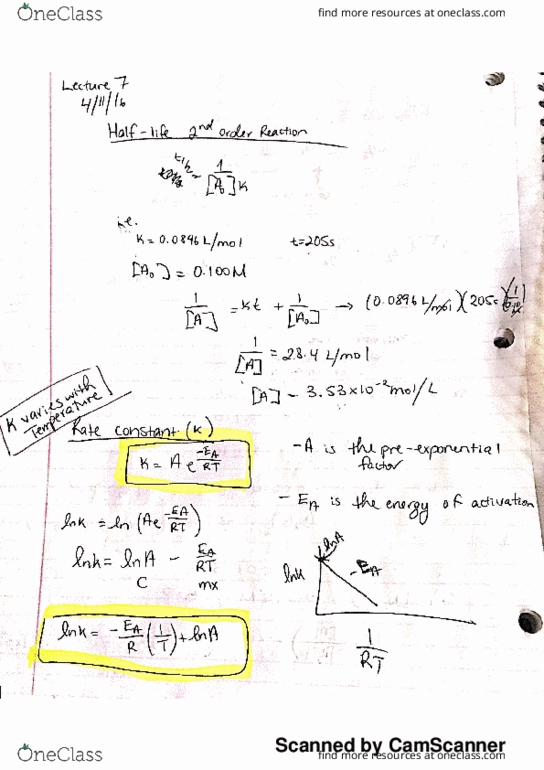 OneClass
find more resources at oneclass.com
Lecture 7
4/11/16
Half-life 2nd order Reaction
t1/2 = 1/[A0]K
i.e.
K = 0.0896 L/mol t = 205s
[A0] = 0.100M
1/[A] = Kt + 1/[A0] → (0.0896 L/mol)(205s
1/[A] = 28.4 L/mol
[A] = 3.53×10^-2 mol/L
K varies with
Temperature
Rate constant (K)
K = A e^(-EA/RT)
-A is the pre-exponential
factor
- EA is the energy of activation
lnk = ln (Ae^(-EA/RT))
lnk = lnA - EA/RT
C mx
lnk = -EA/R (1/T) + lnA
lnk
lnA
-EA
1/RT
Scanned by CamScanner
OneClass
find more resources at oneclass.com